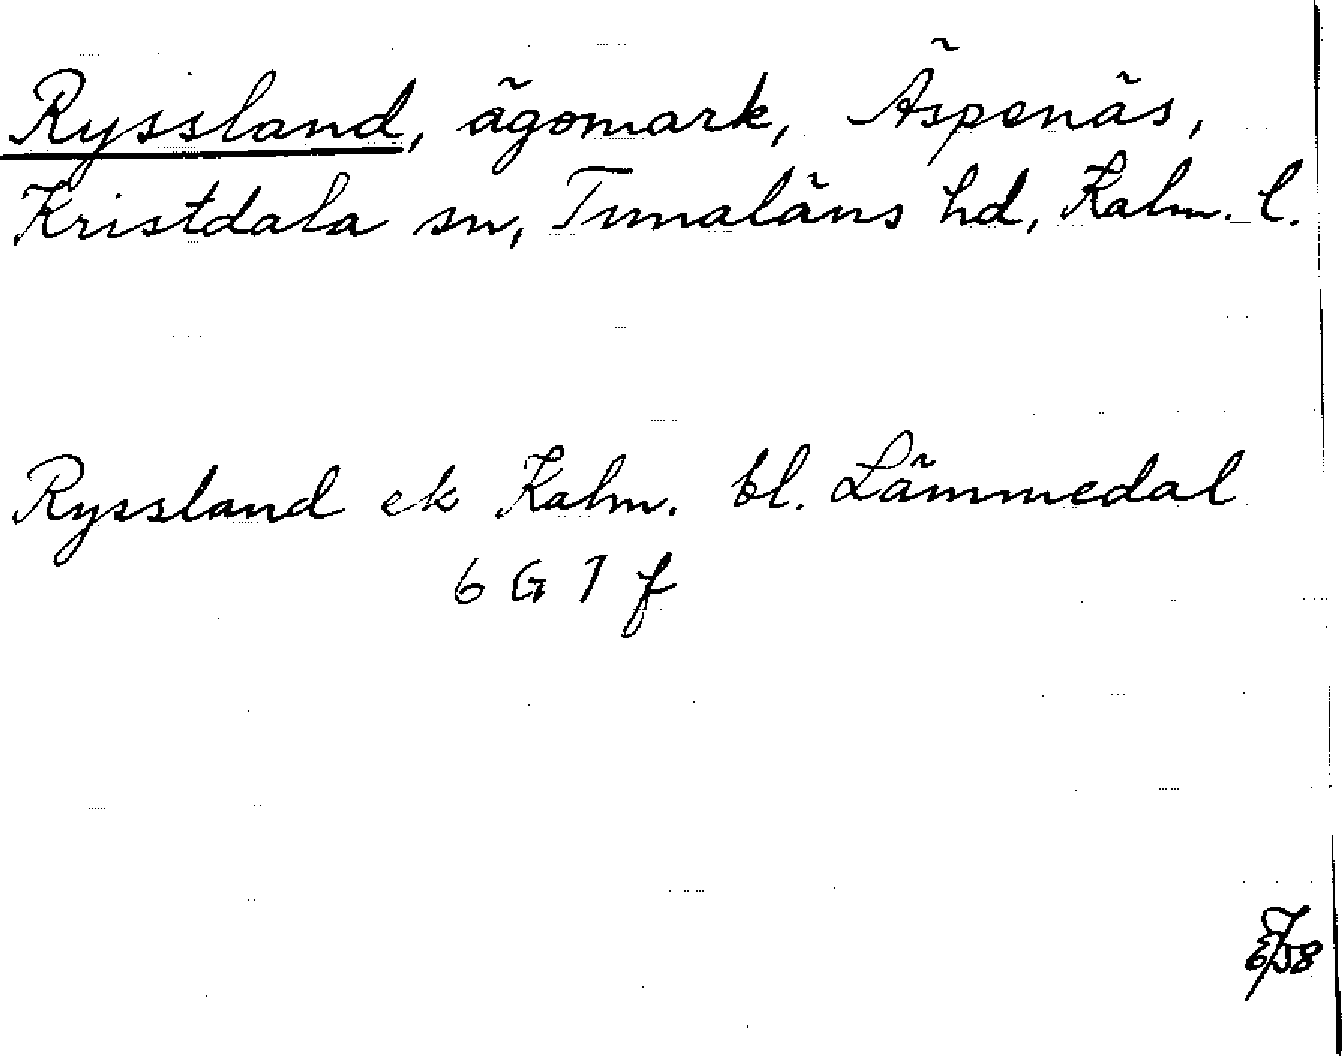 Ryssland, ägomark, Äspenäs,
Kristdala sn, Tunaläns hd, Kalm. l.
Ryssland ek Kalm. bl. Lämmedal
6 G 7 f